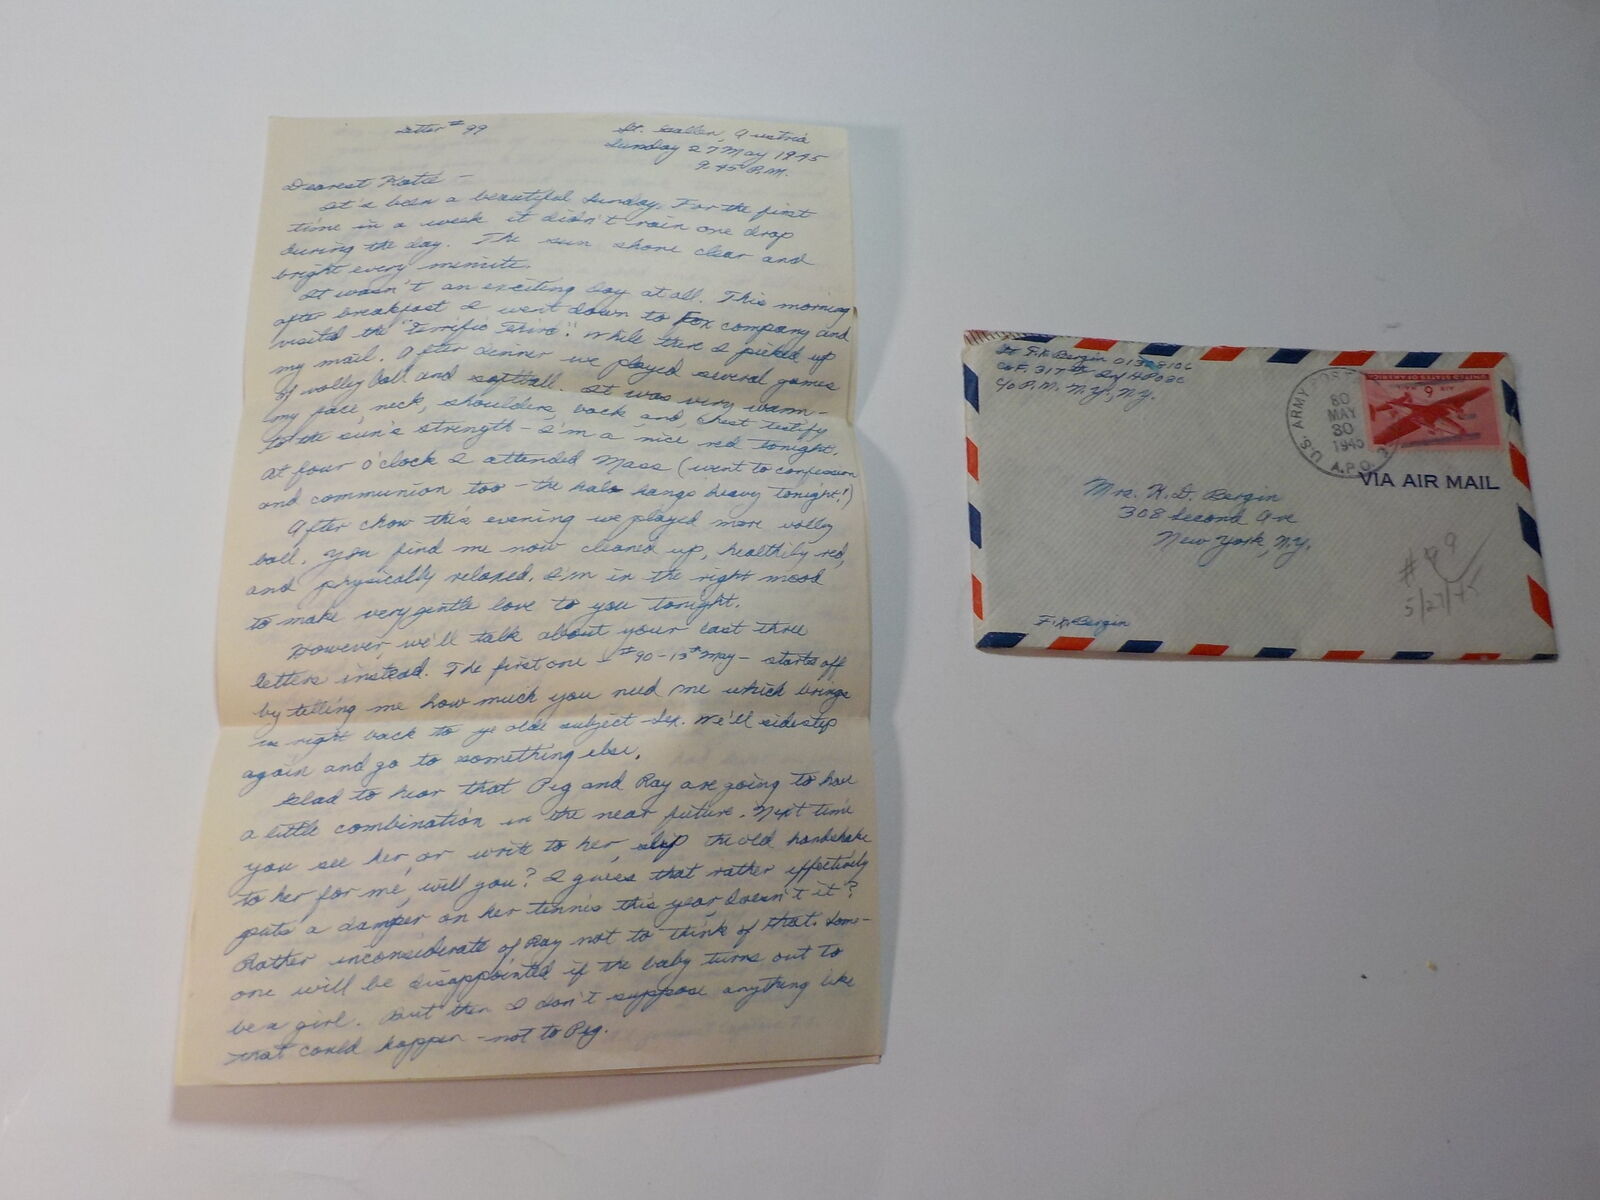 Letter #99
St. Gallen, Austria
Sunday 27 May 1945
9:45 P.M.
Dearest Katie -
It's been a beautiful Sunday. For the first
time in a week it didn't rain one drop
during the day. The sun shone clear and
bright every minute.
It wasn't an exciting day at all. This morning
after breakfast I went down to Fox company and
visited the "Terrific Third". While there I picked up
my mail. After dinner we played several games
of volley ball and softball. It was very warm -
my face neck, shoulders, back and, chest testify
to the sun's strength - I'm a nice red tonight.
At four o'clock I attended Mass (went to confession
and communion too - the halo hangs heavy tonight!)
After chow this evening we played more volley
ball. You find me now cleaned up, healthily red,
and physically relaxed. I'm in the right mood
to make very gentle love to you tonight.
However we'll talk about your last three
letters instead. The first one - #90 - 15th May - starts off
by telling me how much you need me which brings
us right back to ye olde subject - Sex. We'll sidestep
again and go to something else.
Glad to hear that Peg and Ray are going to have
a little combination in the near future. Next time
you see her, or write to her, slip the old handshake
to her for me, will you? I guess that rather effectively
puts a damper on her tennis this year doesn't it?
Rather inconsiderate of Ray not to think of that. Some-
one will be disappointed if the baby turns out to
be a girl. But then I don't suppose anything like
that could happen - not to Peg.
Lt F.X. Bergin 01308106
Co F, 317th Inf APO 80
C/O P.M. N.Y., N.Y.
U.S. ARMY POST
80
MAY
30
1945
A.P.O.
UNITED STATES OF AMERICA
AIR
6
VIA AIR MAIL
Mrs. K.D. Bergin
308 Second Ave
New York, N.Y.
#99
5/27/45
F.X. Bergin